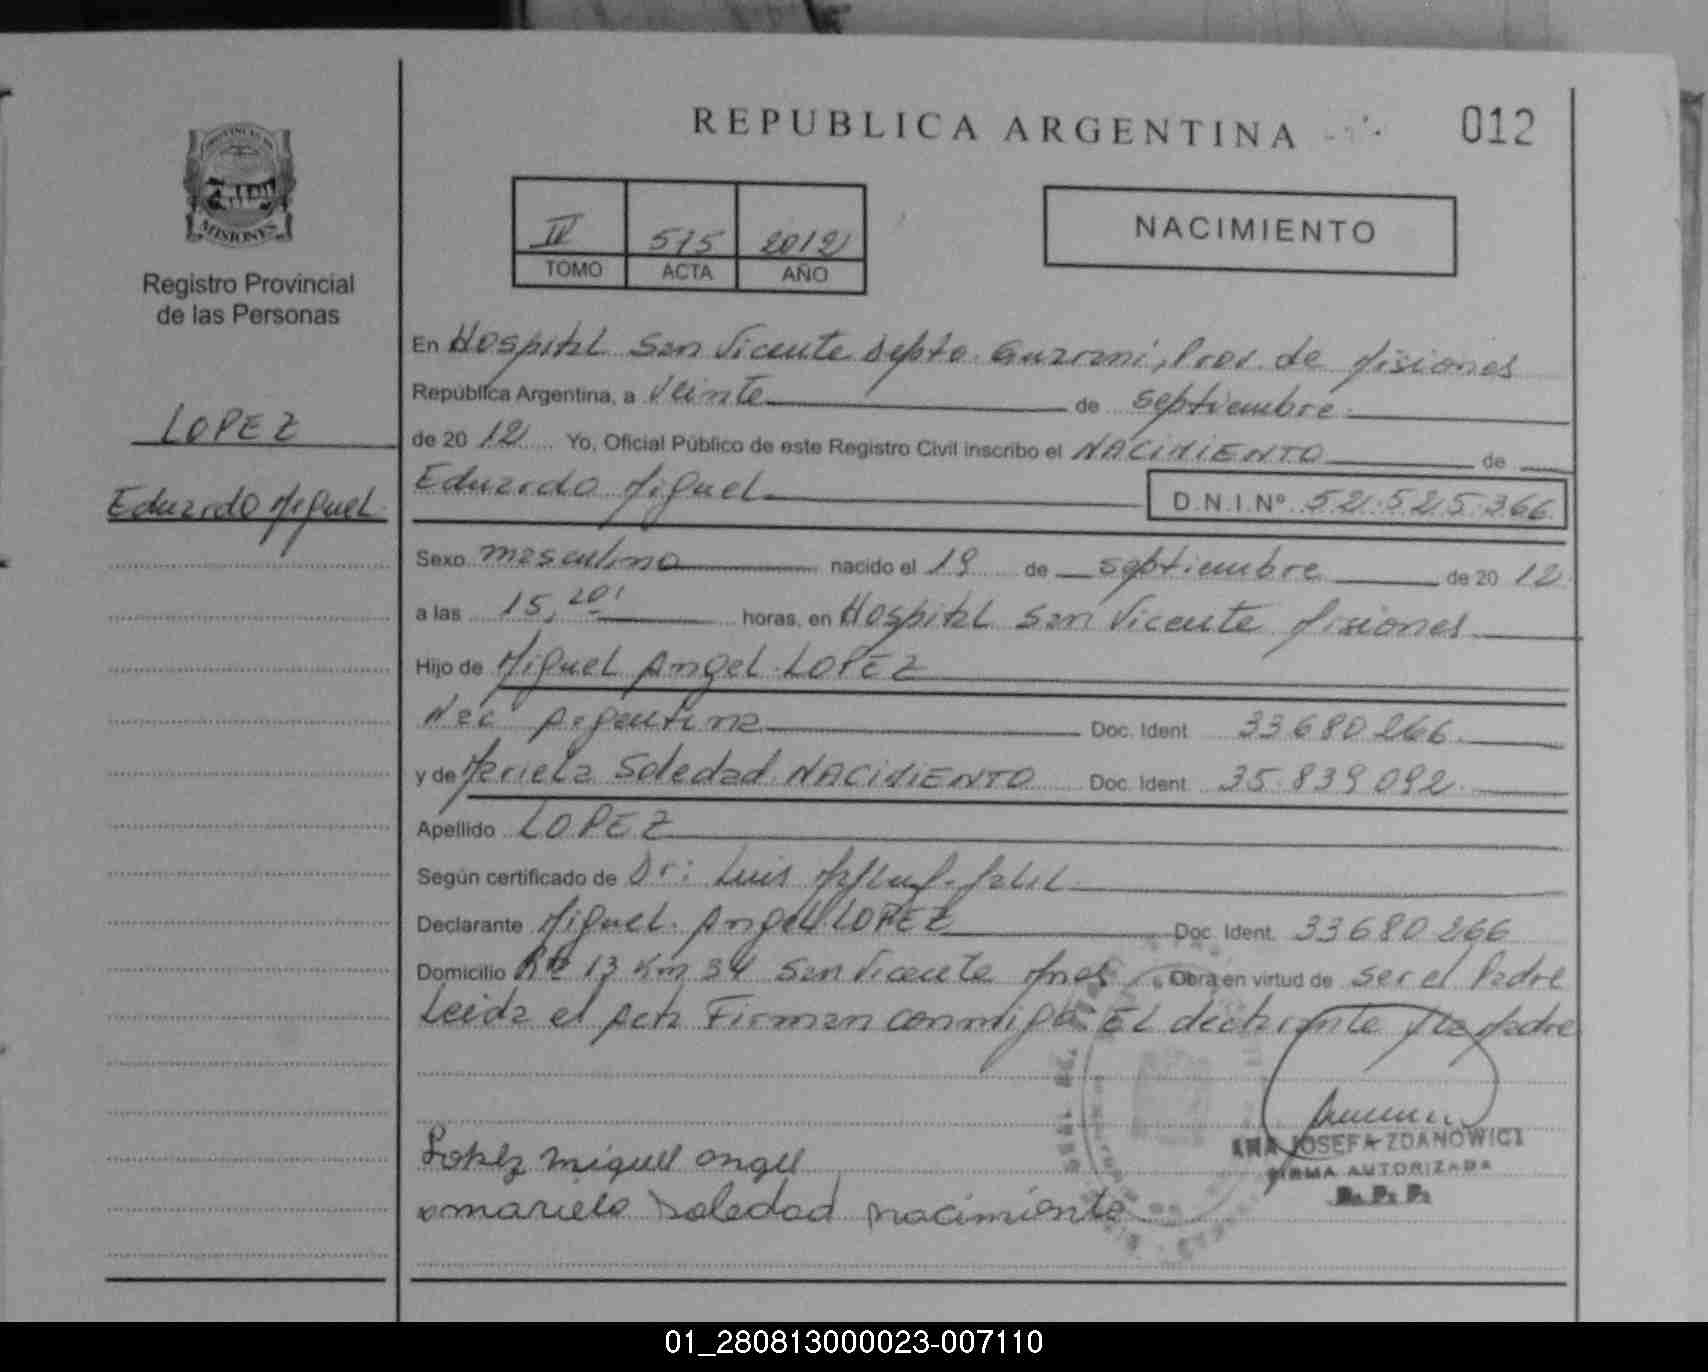 REPUBLICA ARGENTINA
012
PROVINCIA DE
MISIONES
Registro Provincial
de las Personas
LOPEZ
Eduardo Miguel
IV 515 2012
TOMO ACTA AÑO
NACIMIENTO
En Hospital San Vicente Depto. Guarani, Prov. de Misiones
República Argentina, a Veinte de septiembre
de 20 12 Yo, Oficial Público de este Registro Civil inscribo el NACIMIENTO de
Eduardo Miguel D.N.I.Nº 52.525.366
Sexo masculino nacido el 19 de septiembre de 20 12
a las 15,20' horas, en Hospital San Vicente Misiones
Hijo de Miguel Angel LOPEZ
Nac Argentina Doc. Ident. 33680266
y de Mariela Soledad NACIMIENTO Doc. Ident. 35.839092
Apellido LOPEZ
Según certificado de Dr: Luis
Declarante Miguel Angel LOPEZ Doc. Ident. 33680266
Domicilio Rta 13 Km 34 San Vicente Mnes Obra en virtud de ser el Padre
Leida el Acta Firman conmigo EL declarante y la Madre
Lopez miguel angel
mariela Soledad nacimiento
ANA JOSEFA ZDANOWICZ
FIRMA AUTORIZADA
R. P. P.
01_280813000023-007110